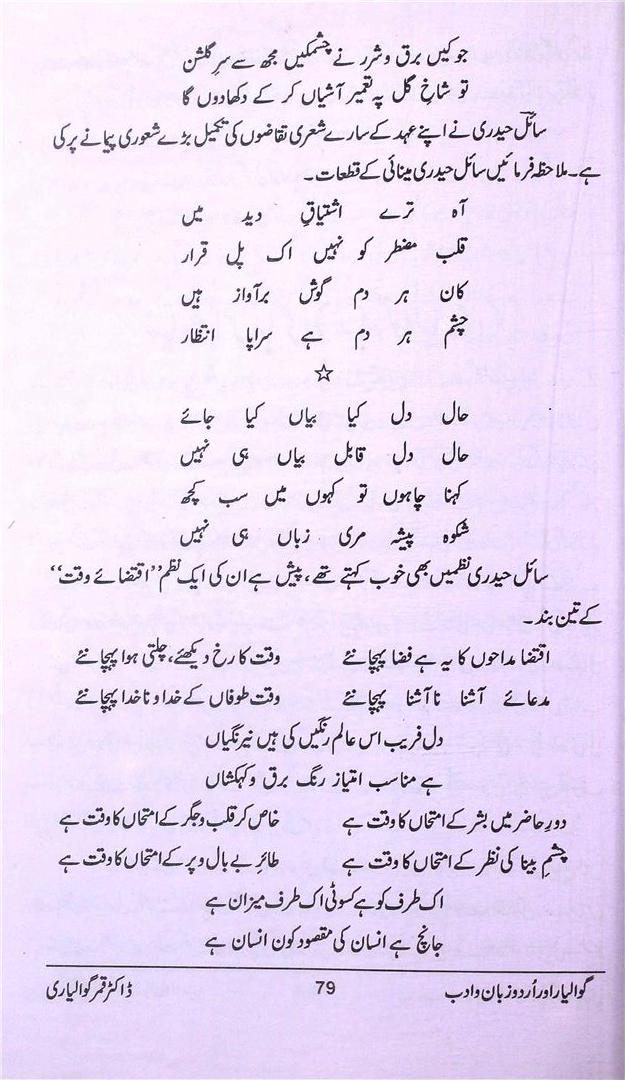 جو کیں برق و شرر نے چشمکیں مجھ سے سرِ گلشن
تو شاخِ گل پہ تعمیر آشیاں کر کے دکھا دوں گا
سائل حیدری نے اپنے عہد کے سارے شعری تقاضوں کی تکمیل بڑے شعوری پیمانے پر کی
ہے۔ ملاحظہ فرمائیں سائل حیدری مینائی کے قطعات۔
آہ ترے اشتیاقِ دید میں
قلب مضطر کو نہیں اک پل قرار
کان ہر دم گوش برآواز ہیں
چشم ہر دم ہے سراپا انتظار
☆
حال دل کیا بیاں کیا جائے
حال دل قابل بیاں ہی نہیں
کہنا چاہوں تو کہوں میں سب کچھ
شکوہ پیشہ مری زباں ہی نہیں
سائل حیدری نظمیں بھی خوب کہتے تھے، پیش ہے ان کی ایک نظم ”اقتضائے وقت“
کے تین بند۔
اقتضا مداحوں کا یہ ہے فضا پہچانئے وقت کا رخ دیکھئے، چلتی ہوا پہچانئے
مدعائے آشنا ناآشنا پہچانئے وقت طوفاں کے خدا و ناخدا پہچانئے
دل فریب اس عالم رنگیں کی ہیں نیرنگیاں
ہے مناسب امتیاز رنگ برق و کہکشاں
دورِ حاضر میں بشر کے امتحاں کا وقت ہے خاص کر قلب و جگر کے امتحاں کا وقت ہے
چشمِ بینا کی نظر کے امتحاں کا وقت ہے طائرِ بے بال و پر کے امتحاں کا وقت ہے
اک طرف کو ہے کسوٹی اک طرف میزان ہے
جانچ ہے انسان کی مقصود کون انسان ہے
گوالیار اور اُردو زبان و ادب 79 ڈاکٹر قمر گوالیاری